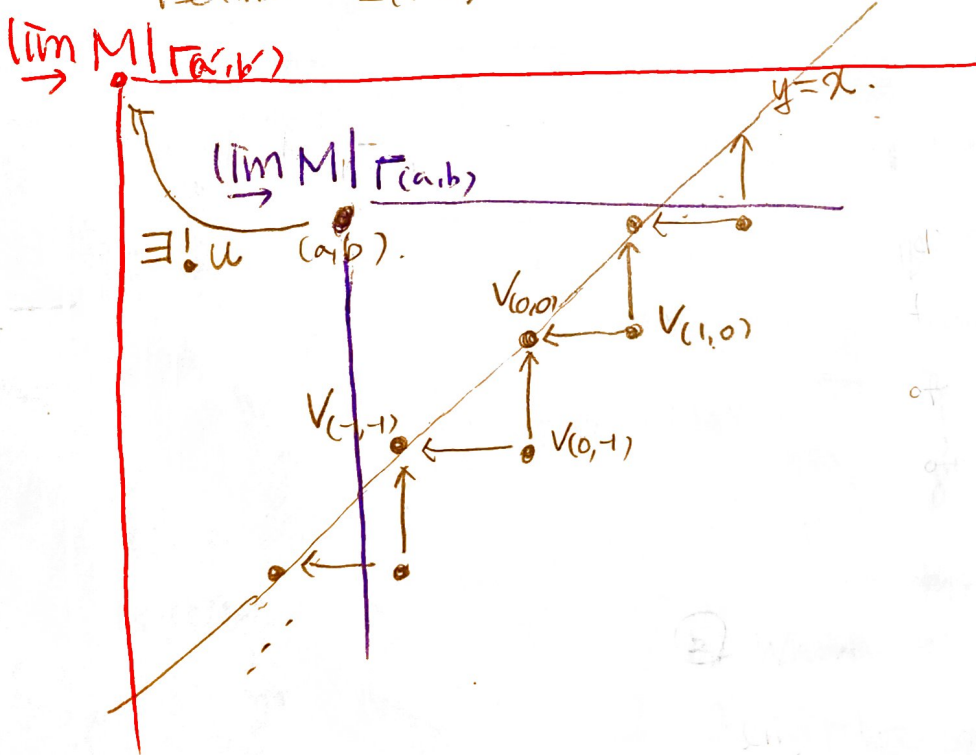 lim M|Γ(a',b')
→
y=x.
lim M|Γ(a,b)
→
∃! u
(a,b).
V(0,0)
V(1,0)
V(-1,-1)
V(0,-1)